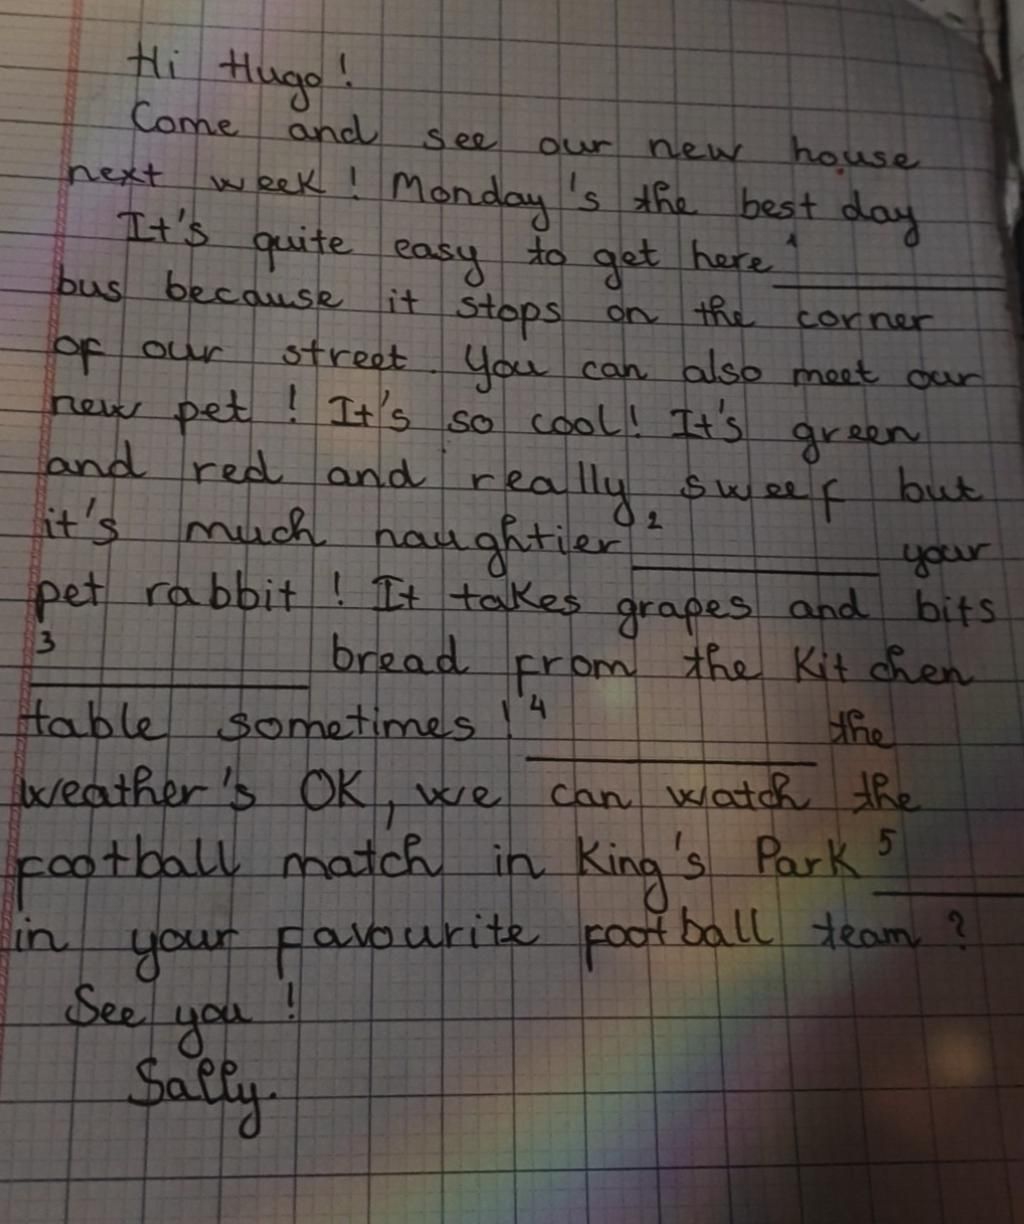 Hi Hugo!
Come and see our new house
next week! Monday's the best day
It's quite easy to get here 1 ________
bus because it stops on the corner
of our street. You can also meet our
new pet! It's so cool! It's green
and red and really sweet but
it's much naughtier 2 ________ your
pet rabbit! It takes grapes and bits
3 ________ bread from the kitchen
table sometimes! 4 ________ the
weather's OK, we can watch the
football match in King's Park 5 ________
in your favourite football team?
See you!
Sally.